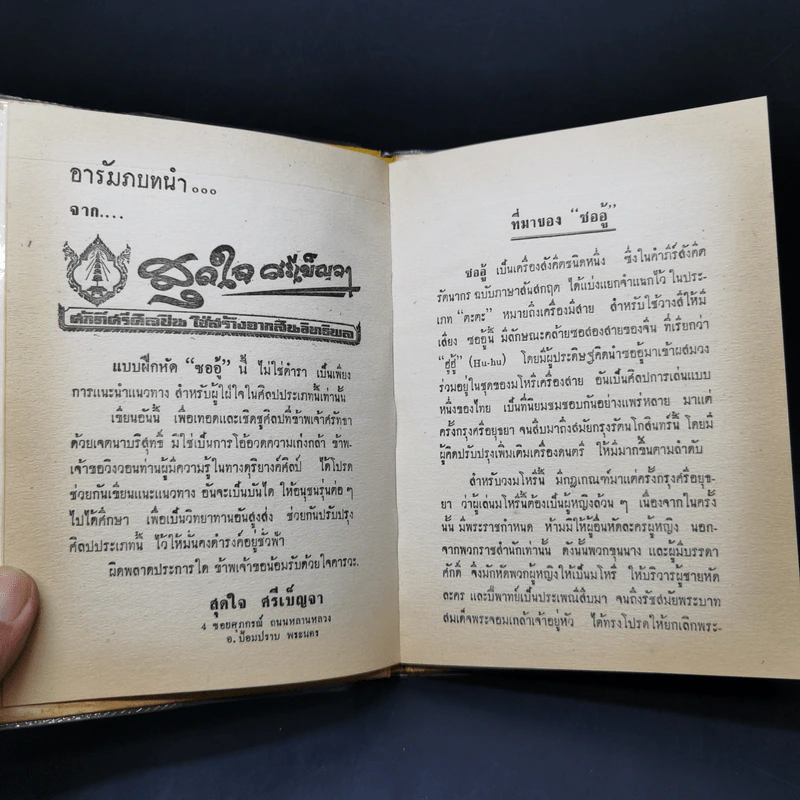 อารัมภบทนำ...
จาก....
สุดใจ ศรีเบ็ญจา
ศักดิ์ศรีศิลปิน ใช่สร้างจากสินอิทธิพล
แบบฝึกหัด “ซออู้” นี้ ไม่ใช่ตำรา เป็นเพียง
การแนะนำแนวทาง สำหรับผู้ใฝ่ใจในศิลปประเภทนี้เท่านั้น
เขียนอันนี้ เพื่อเทอดและเชิดชูศิลปที่ข้าพเจ้าศรัทธา
ด้วยเจตนาบริสุทธิ์ มิใช่เป็นการโอ้อวดความเก่งกล้า ข้าพ-
เจ้าขอวิงวอนท่านผู้มีความรู้ในทางดุริยางค์ศิลป์ ได้โปรด
ช่วยกันเขียนแนะแนวทาง อันจะเป็นบันได ให้อนุชนรุ่นต่อ ๆ
ไปได้ศึกษา เพื่อเป็นวิทยาทานอันสูงส่ง ช่วยกันปรับปรุง
ศิลปประเภทนี้ ไว้ให้มั่นคงดำรงค์อยู่ชั่วฟ้า
ผิดพลาดประการใด ข้าพเจ้าขอน้อมรับด้วยใจคารวะ
สุดใจ ศรีเบ็ญจา
4 ซอยศุภกรณ์ ถนนหลานหลวง
อ. ป้อมปราบ พระนคร
ที่มาของ “ซออู้”
ซออู้ เป็นเครื่องสังคีตชนิดหนึ่ง ซึ่งในคำภีร์สังคีต
รัตนากร ฉบับภาษาสันสกฤต ได้แบ่งแยกจำแนกไว้ ในประ-
เภท “ตะตะ” หมายถึงเครื่องมีสาย สำหรับใช้วางสีให้มี
เสียง ซออู้นี้ มีลักษณะคล้ายซอสองสายของจีน ที่เรียกว่า
“ฮู้ฮู้” (Hu-hu) โดยมีผู้ประดิษฐ์คิดนำซออู้มาเข้าผสมวง
ร่วมอยู่ในชุดของมโหรีเครื่องสาย อันเป็นศิลปการเล่นแบบ
หนึ่งของไทย เป็นที่นิยมชมชอบกันอย่างแพร่หลาย มาแต่
ครั้งกรุงศรีอยุธยา จนสืบมาถึงสมัยกรุงรัตนโกสินทร์นี้ โดยมี
ผู้คิดปรับปรุงเพิ่มเติมเครื่องดนตรี ให้มีมากขึ้นตามลำดับ
สำหรับวงมโหรีนี้ มีกฎเกณฑ์มาแต่ครั้งกรุงศรีอยุธ-
ยา ว่าผู้เล่นมโหรีต้องเป็นผู้หญิงล้วน ๆ เนื่องจากในครั้ง
นั้น มีพระราชกำหนด ห้ามมิให้ผู้อื่นหัดละครผู้หญิง นอก-
จากพวกราชสำนักเท่านั้น ดังนั้นพวกขุนนาง และผู้มีบรรดา
ศักดิ์ จึงมักหัดพวกผู้หญิงให้เป็นมโหรี ให้บริวารผู้ชายหัด
ละคร และปี่พาทย์เป็นประเพณีสืบมา จนถึงรัชสมัยพระบาท
สมเด็จพระจอมเกล้าเจ้าอยู่หัว ได้ทรงโปรดให้ยกเลิกพระ-